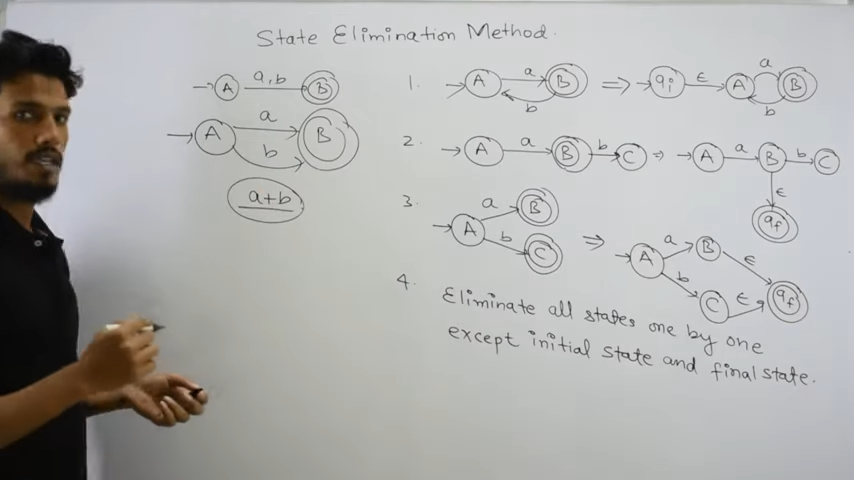 State Elimination Method.
→ A a,b B
→ A a b B
a+b
1. → A a b B ⇒ → qi ε A a b B
2. → A a B b C ⇒ → A a B b C ε qf
3. → A a B b C ⇒ → A a B ε b C ε qf
4. Eliminate all states one by one
except initial state and final state.